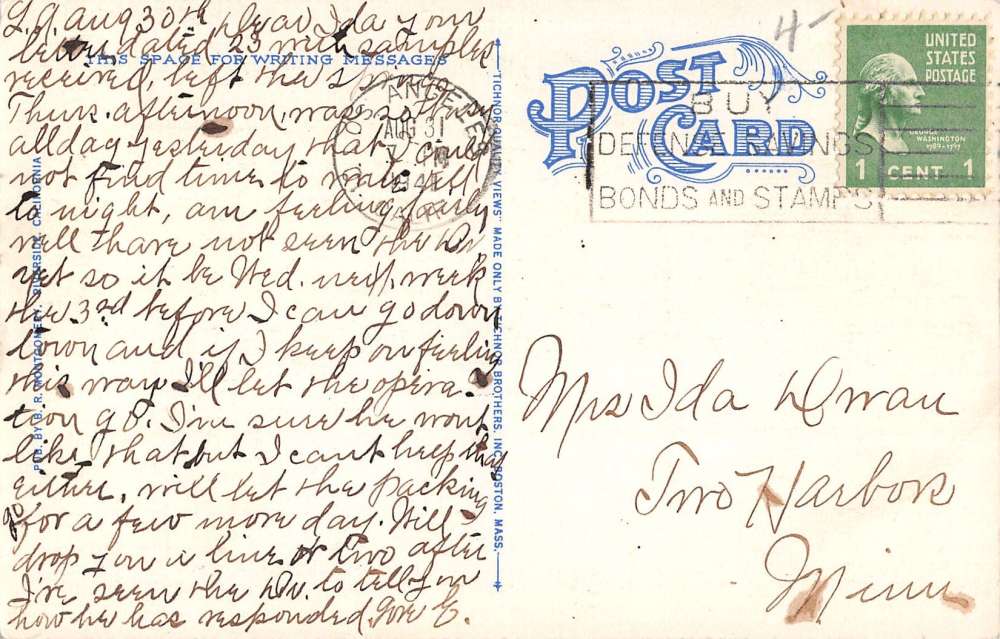 L.A. Aug 30th, Dear Ida your
letter dated 23 with samples
received, left the springs
Thurs. afternoon, was so busy
all day yesterday that I could
not find time to write till
to night, am feeling fairly
well & have not seen the Dr.
yet so it be Wed. next week
the 3rd before I can go down
town and if I keep on feeling
this way I'll let the opera-
tion go. I'm sure he wont
like that but I cant help that
either, will let the packing
go for a few more day. Will
drop you a line or two after
I've seen the Dr. to tell you
how he has responded. Love E.
THIS SPACE FOR WRITING MESSAGES
PUB. BY B. R. MONTGOMERY, RIVERSIDE, CALIFORNIA
"TICHNOR QUALITY VIEWS" MADE ONLY BY TICHNOR BROTHERS, INC. BOSTON, MASS.
LOS ANGELES
AUG 31
PM
1941
CALIF.
POST
CARD
4-
BUY
DEFENSE SAVINGS
BONDS AND STAMPS
UNITED
STATES
POSTAGE
GEORGE
WASHINGTON
1789-1797
1 CENT 1
Mrs Ida Dwan
Two Harbors
Minn